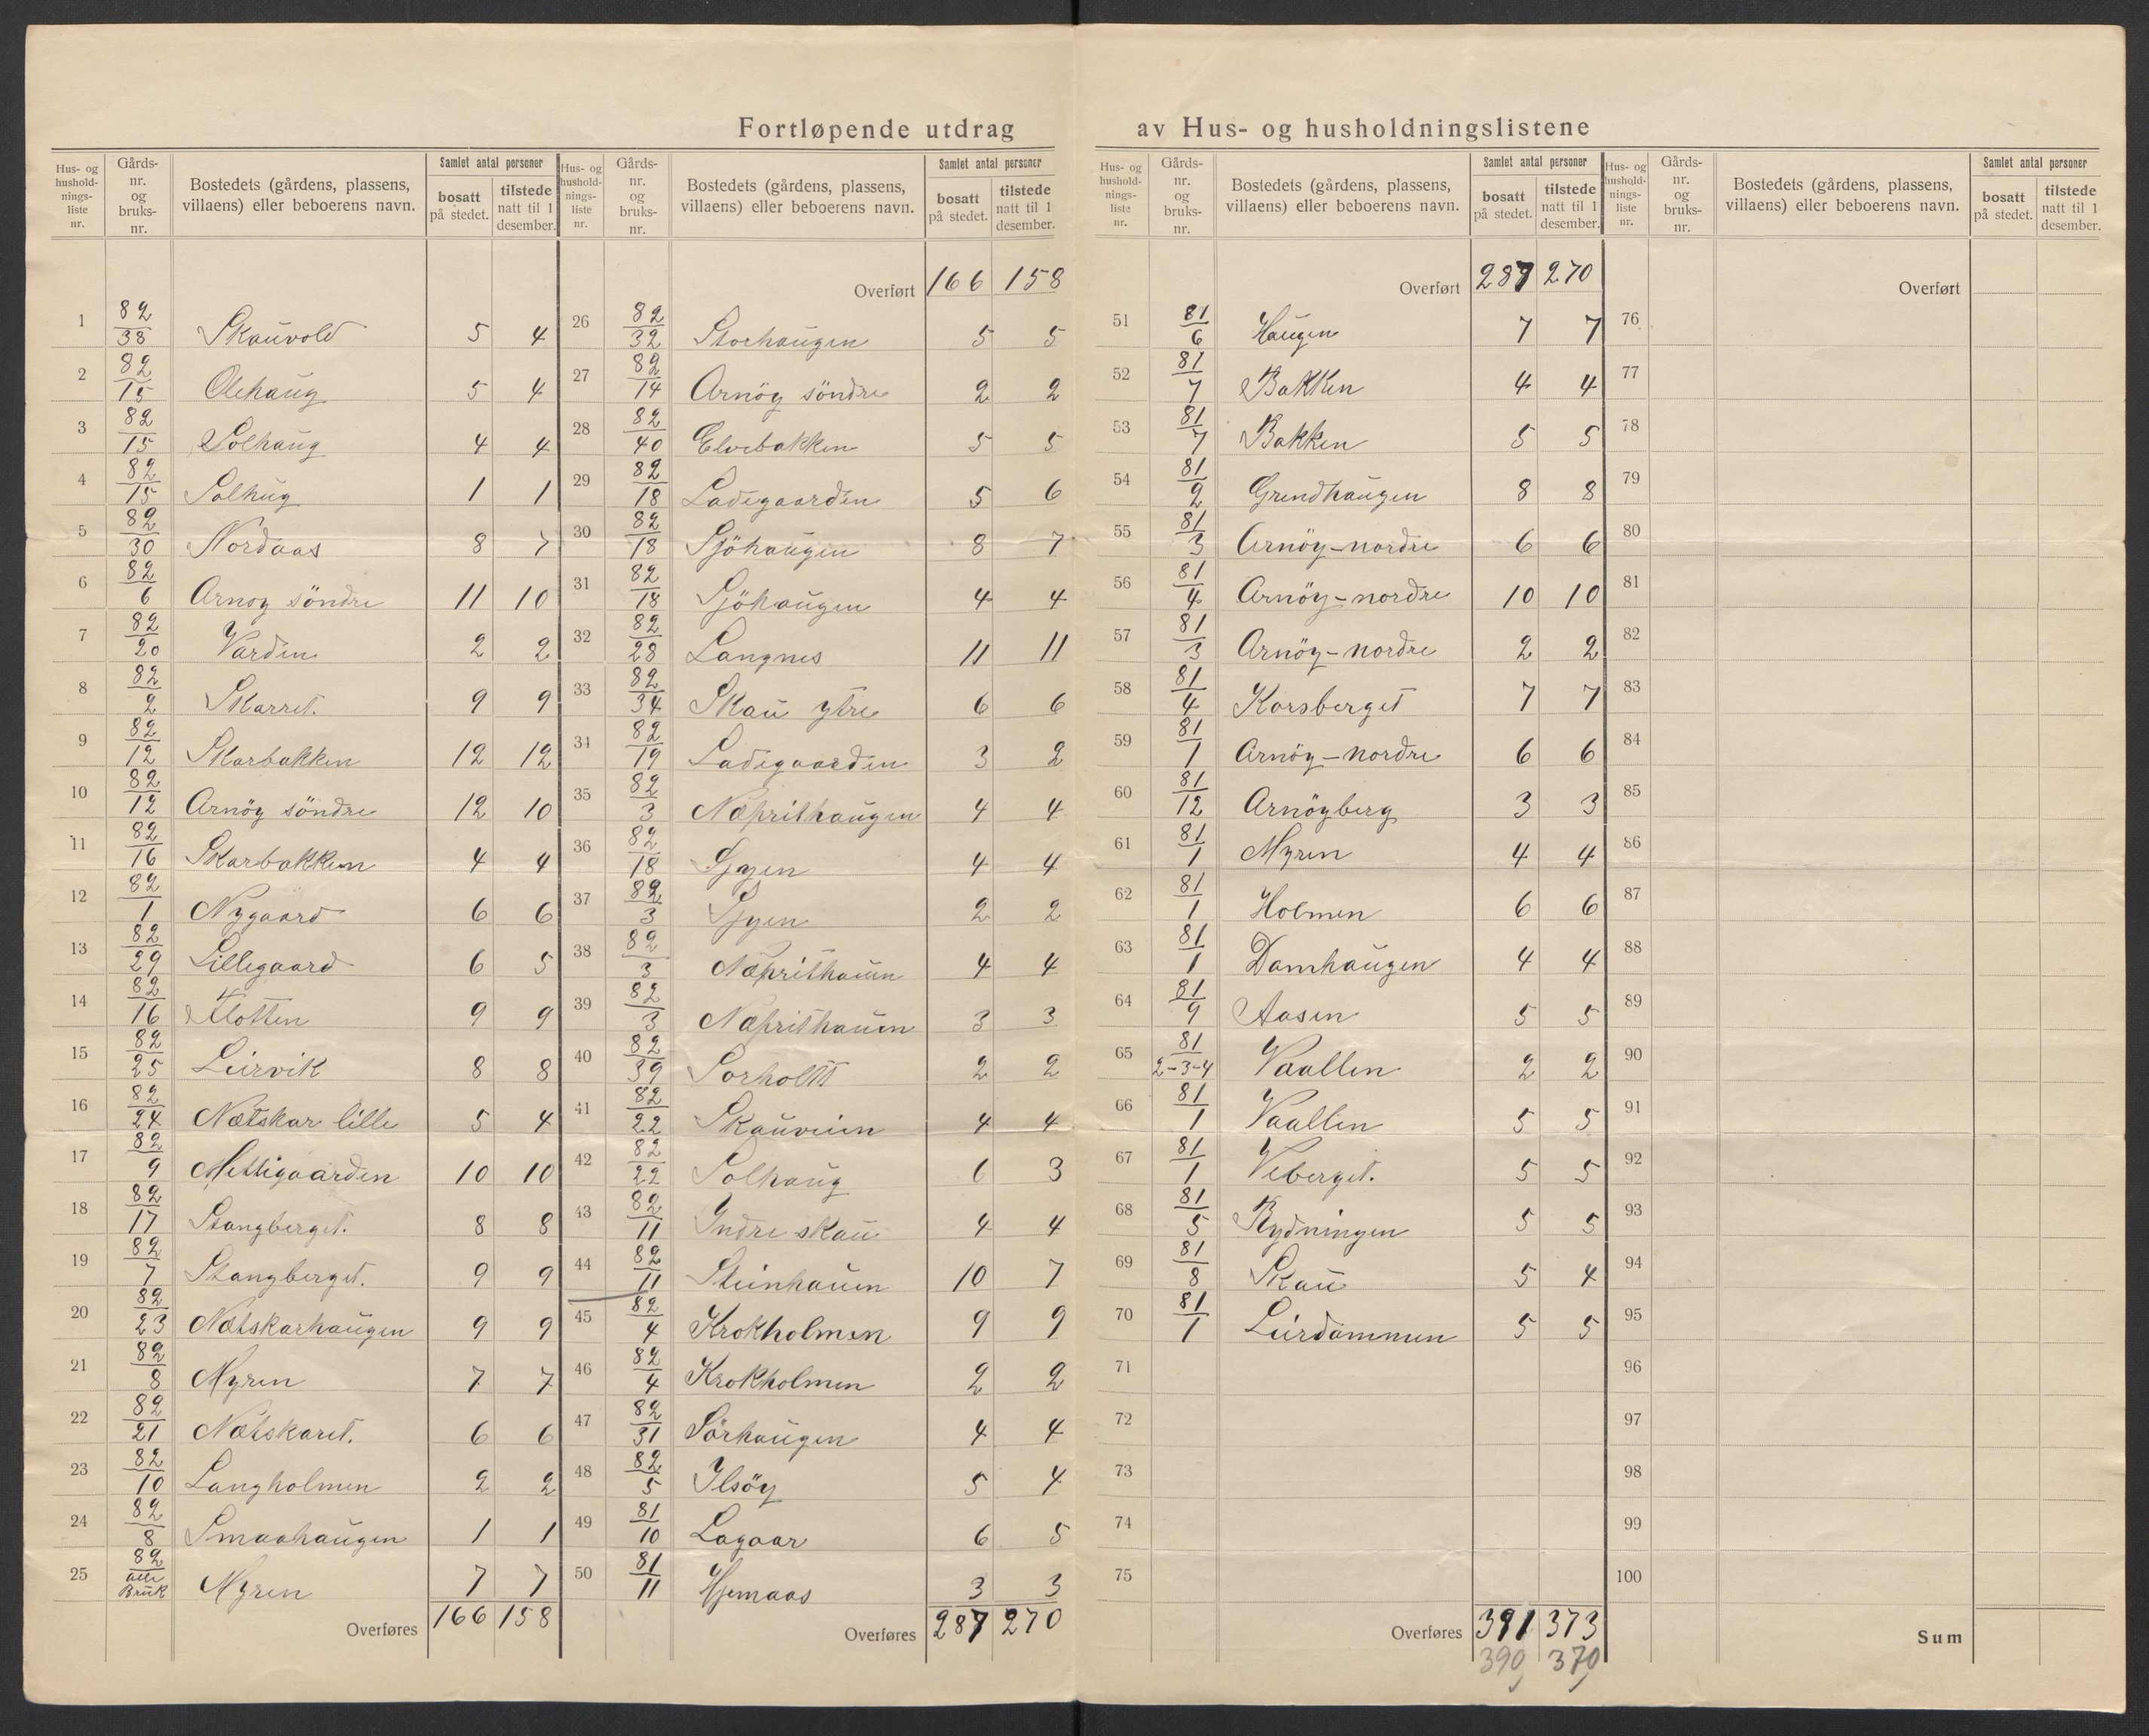 Fortløpende utdrag av Hus- og husholdningslistene
Hus- og husholdningsliste nr. | Gårds-nr. og bruks-nr. | Bostedets (gårdens, plassens, villaens) eller beboerens navn. | Samlet antal personer bosatt på stedet. | tilstede natt til 1 desember.
1 82/38 Skauvold 5 4
2 82/15 Olehaug 5 4
3 82/15 Solhaug 4 4
4 82/15 Solhug 1 1
5 82/30 Nordaas 8 7
6 82/6 Arnøy söndre 11 10
7 82/20 Varden 2 2
8 82/2 Skarret. 9 9
9 82/12 Skarbakken 12 12
10 82/12 Arnöy söndre 12 10
11 82/16 Skarbakken 4 4
12 82/1 Nygaard 6 6
13 82/29 Lillegaard 6 5
14 82/16 Flotten 9 9
15 82/25 Leirvik 8 8
16 82/24 Nætskar lille 5 4
17 82/9 Mettigaarden 10 10
18 82/17 Stangberget. 8 8
19 82/7 Stangberget. 9 9
20 82/23 Nætskarhaugen 9 9
21 82/8 Myren 7 7
22 82/21 Nætskaret. 6 6
23 82/10 Langholmen 2 2
24 82/8 Smaahaugen 1 1
25 82/alle Bruk Myren 7 7
Overføres 166 158
Hus- og husholdningsliste nr. | Gårds-nr. og bruks-nr. | Bostedets (gårdens, plassens, villaens) eller beboerens navn. | Samlet antal personer bosatt på stedet. | tilstede natt til 1 desember.
Overført 166 158
26 82/32 Storhaugen 5 5
27 82/14 Arnöy söndre 2 2
28 82/40 Elvebakken 5 5
29 82/18 Ladegaarden 5 6
30 82/18 Sjöhaugen 8 7
31 82/18 Sjöhaugen 4 4
32 82/28 Langnes 11 11
33 82/34 Skau ytre 6 6
34 82/19 Ladegaarden 3 2
35 82/3 Næprithaugen 4 4
36 82/18 Syen 4 4
37 82/3 Syen 2 2
38 82/3 Næprithauen 4 4
39 82/3 Næprithauen 3 3
40 82/39 Sorholtt 2 2
41 82/22 Skauveien 4 4
42 82/22 Solhaug 6 3
43 82/11 Indre skau 4 4
44 82/11 Steinhauen 10 7
45 82/4 Krokholmen 9 9
46 82/4 Krokholmen 2 2
47 82/31 Sörhaugen 4 4
48 82/5 Ilsöy 5 4
49 81/10 Lagaar 6 5
50 81/11 Hjemaas 3 3
Overføres 287 270
Hus- og husholdningsliste nr. | Gårds-nr. og bruks-nr. | Bostedets (gårdens, plassens, villaens) eller beboerens navn. | Samlet antal personer bosatt på stedet. | tilstede natt til 1 desember.
Overført 287 270
51 81/6 Haugen 7 7
52 81/7 Bakken 4 4
53 81/7 Bakken 5 5
54 81/2 Grendhaugen 8 8
55 81/3 Arnöy-nordre 6 6
56 81/4 Arnöy-nordre 10 10
57 81/3 Arnöy-nordre 2 2
58 81/4 Korsberget 7 7
59 81/1 Arnöy-nordre 6 6
60 81/12 Arnöyberg 3 3
61 81/1 Myren 4 4
62 81/1 Holmen 6 6
63 81/1 Damhaugen 4 4
64 81/9 Aasen 5 5
65 81/2-3-4 Vaallen 2 2
66 81/1 Vaallen 5 5
67 81/1 Veberget. 5 5
68 81/5 Rydningen 5 5
69 81/8 Skau 5 4
70 81/1 Leirdammen 5 5
71
72
73
74
75
Overføres 391 373
390 370
Hus- og husholdningsliste nr. | Gårds-nr. og bruks-nr. | Bostedets (gårdens, plassens, villaens) eller beboerens navn. | Samlet antal personer bosatt på stedet. | tilstede natt til 1 desember.
Overført
76
77
78
79
80
81
82
83
84
85
86
87
88
89
90
91
92
93
94
95
96
97
98
99
100
Sum